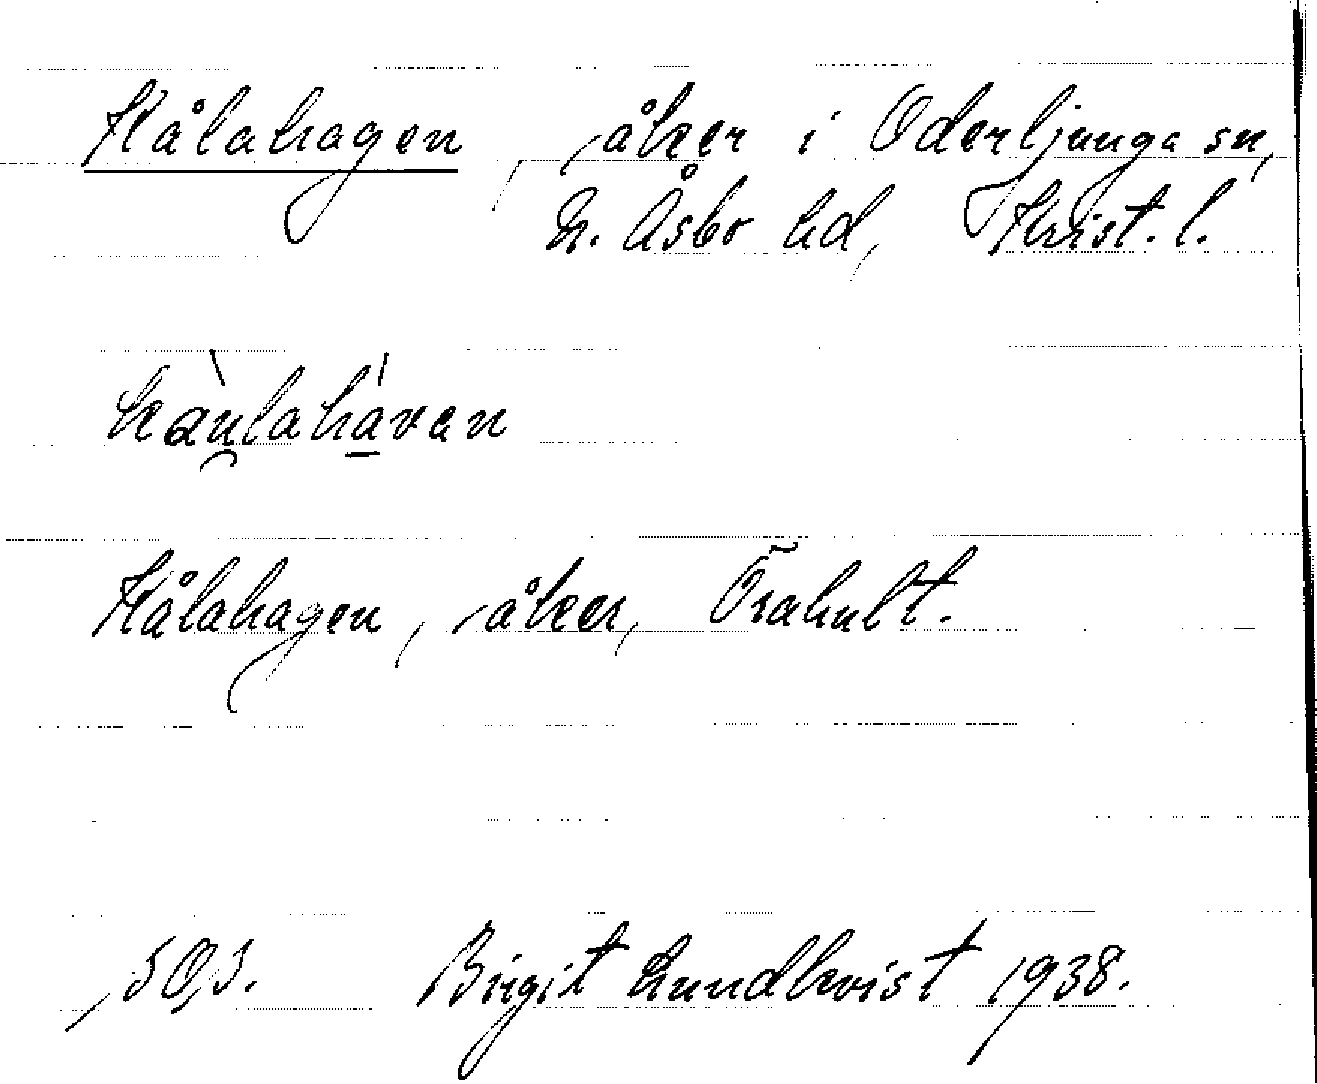 Kålahagen, åker i Oderljunga sn,
N. Åsbo hd, Krist. l.
kàu̯lahá̱ven
Kålahagen, åker, Örahult.
Birgit Lundkvist 1938.